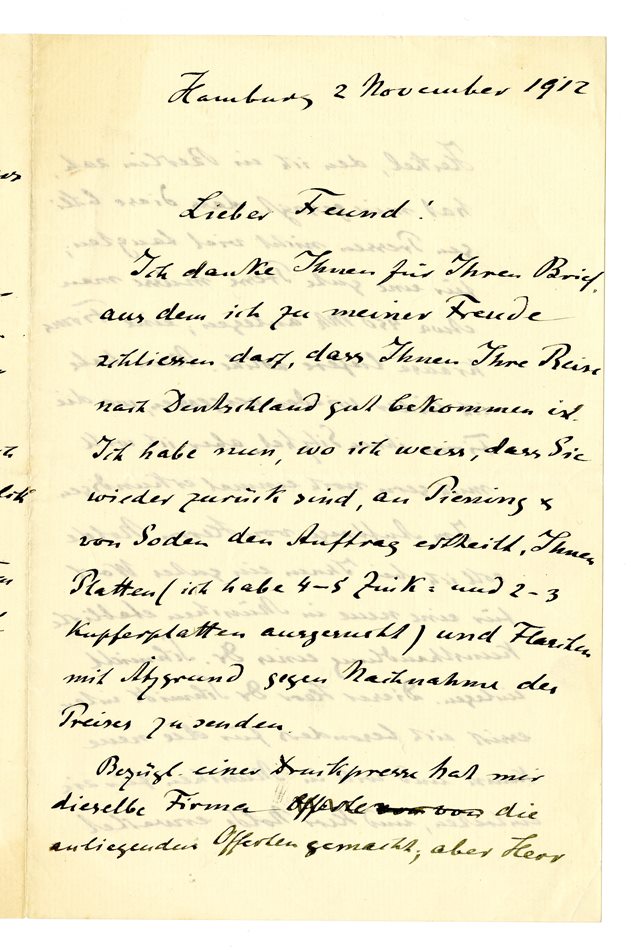 Hamburg 2 November 1912
Lieber Freund!
Ich danke Ihnen für Ihren Brief,
aus dem ich zu meiner Freude
schliessen darf, dass Ihnen Ihre Reise
nach Deutschland gut bekommen ist.
Ich habe nun, wo ich weiss, dass Sie
wieder zurück sind, an Piening &
von Soden den Auftrag ertheilt, Ihnen
Platten (ich habe 4-5 Zink= und 2-3
Kupferplatten ausgesucht) und Flaschen
mit Ätzgrund gegen Nachnahme des
Preises zu senden.
Bezügl. einer Druckpresse hat mir
dieselbe Firma Offerte von die
anliegenden Offerten gemacht, aber Herr